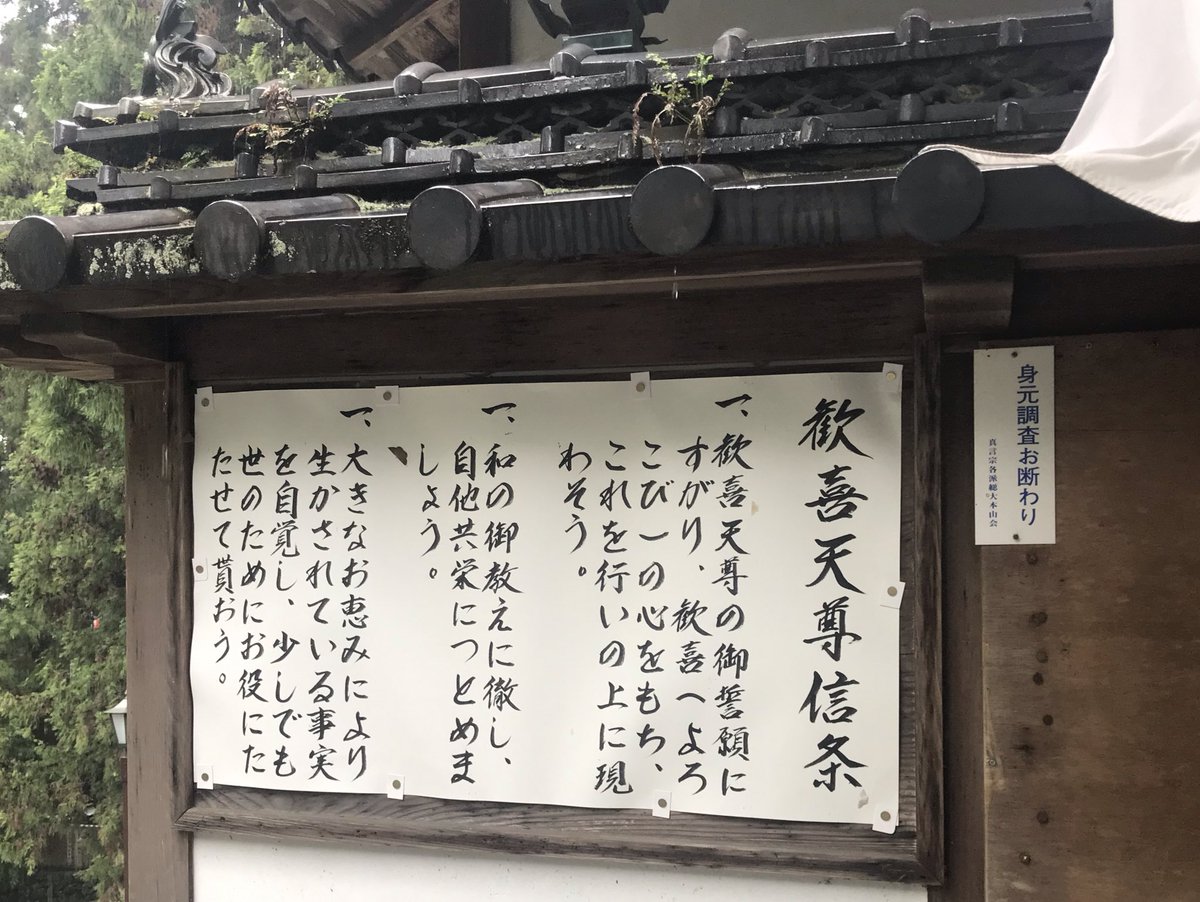 身元調査お断わり
真言宗各派総大本山会
歓喜天尊信条
一、歓喜天尊の御誓願に
すがり、歓喜へよろ
こび一の心をもち、
これを行いの上に現
わそう。
一、和の御教えに徹し、
自他共栄につとめま
しょう。
一、大きなお恵みにより
生かされている事実
を自覚し、少しでも
世のためにお役にた
たせて貰おう。